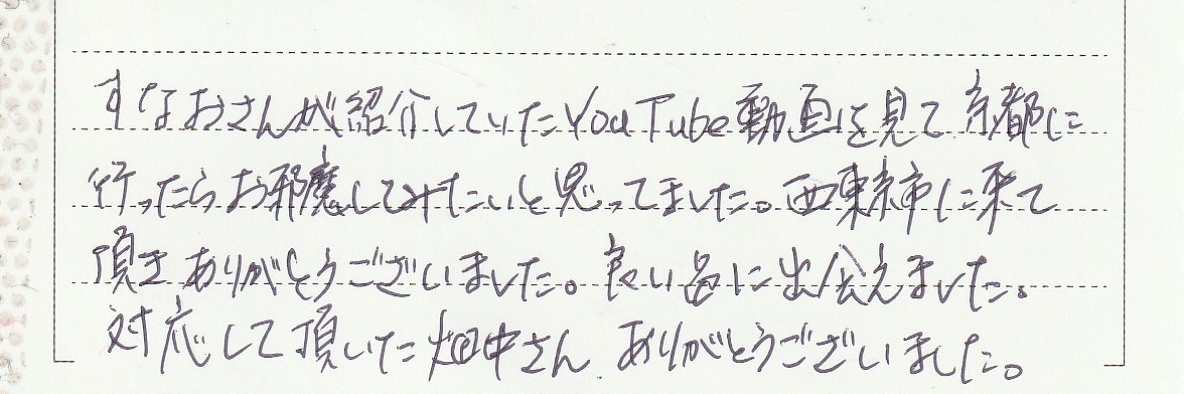 すなおさんが紹介していたYouTube動画を見て京都に
行ったらお邪魔してみたいと思ってました。西東京市に来て
頂きありがとうございました。良い品に出会えました。
対応して頂いた畑中さん、ありがとうございました。